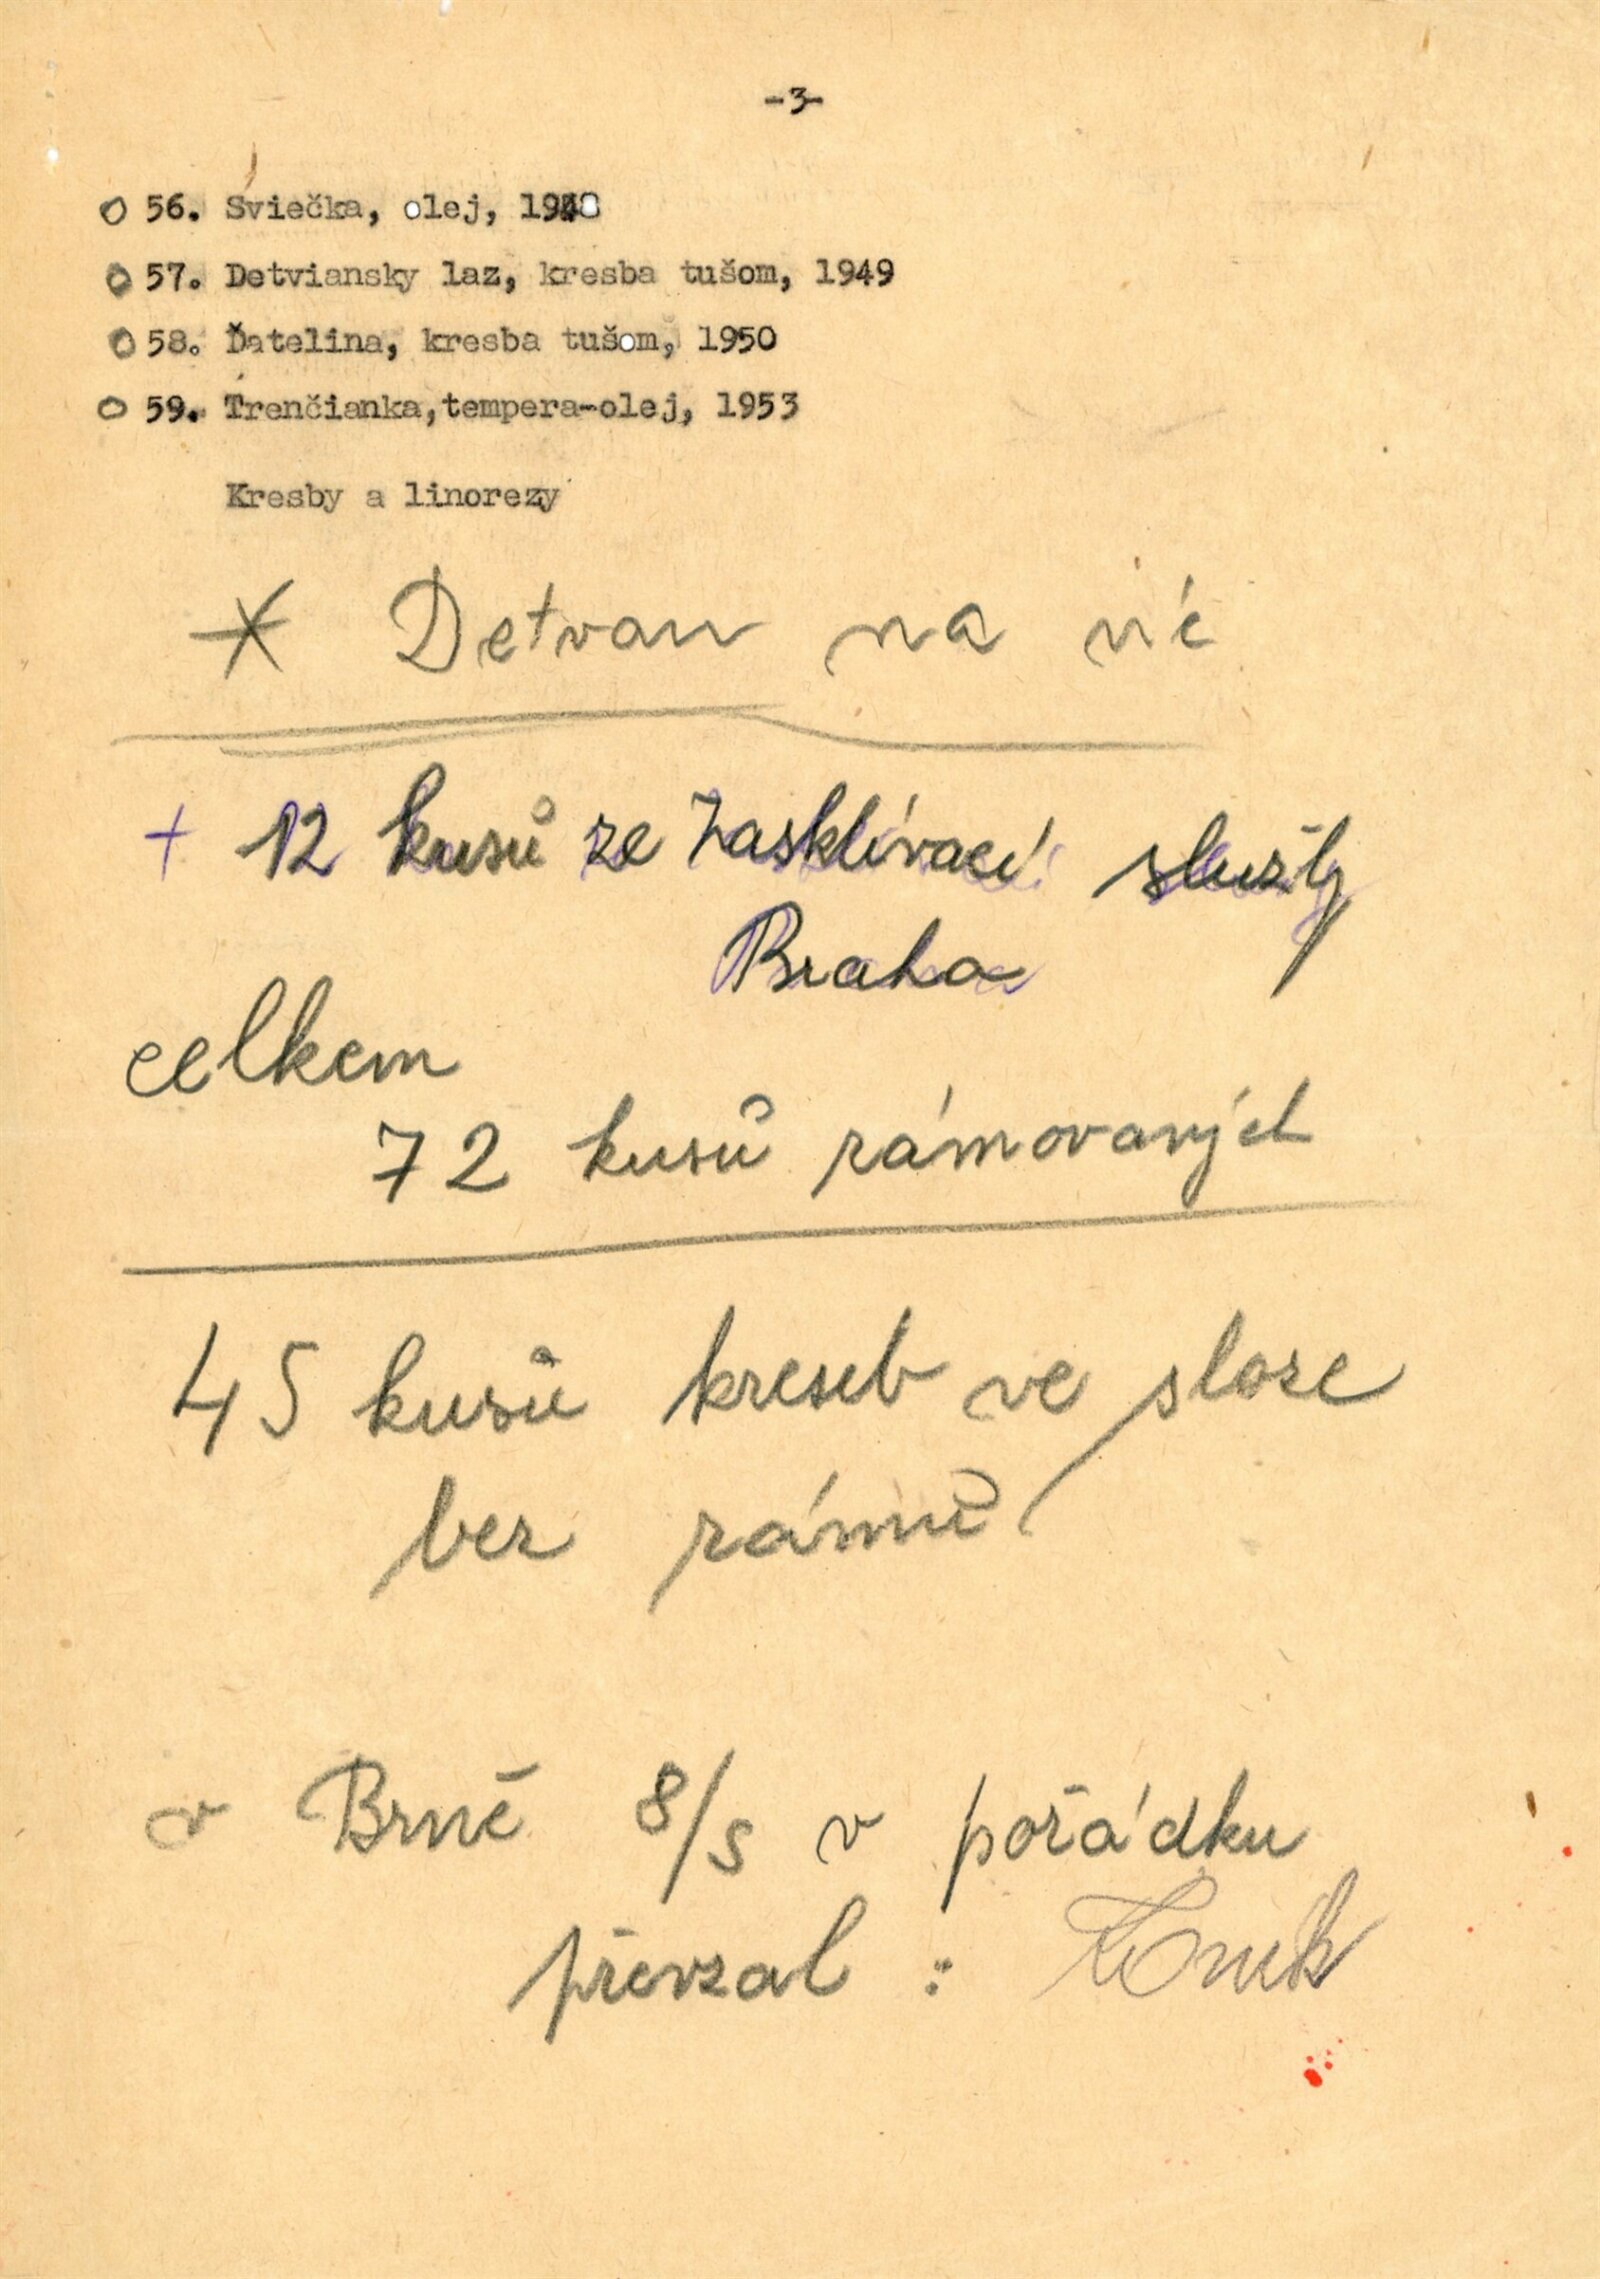 -3-
56. Sviečka, olej, 1948
57. Detviansky laz, kresba tušom, 1949
58. Ďatelina, kresba tušom, 1950
59. Trenčianka, tempera-olej, 1953
Kresby a linorezy
* Detvan na víc
+ 12 kusů ze Zasklívací služby
Praha
celkem
72 kusů rámovaných
45 kusů kreseb ve sloze
bez rámů
v Brně 8/5 v pořádku
převzal :